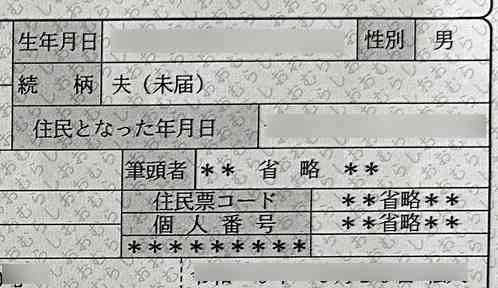 生年月日 性別 男
続柄 夫（未届）
住民となった年月日
筆頭者 ＊＊ 省 略 ＊＊
住民票コード ＊＊省略＊＊
個人番号 ＊＊省略＊＊
＊＊＊＊＊＊＊＊＊